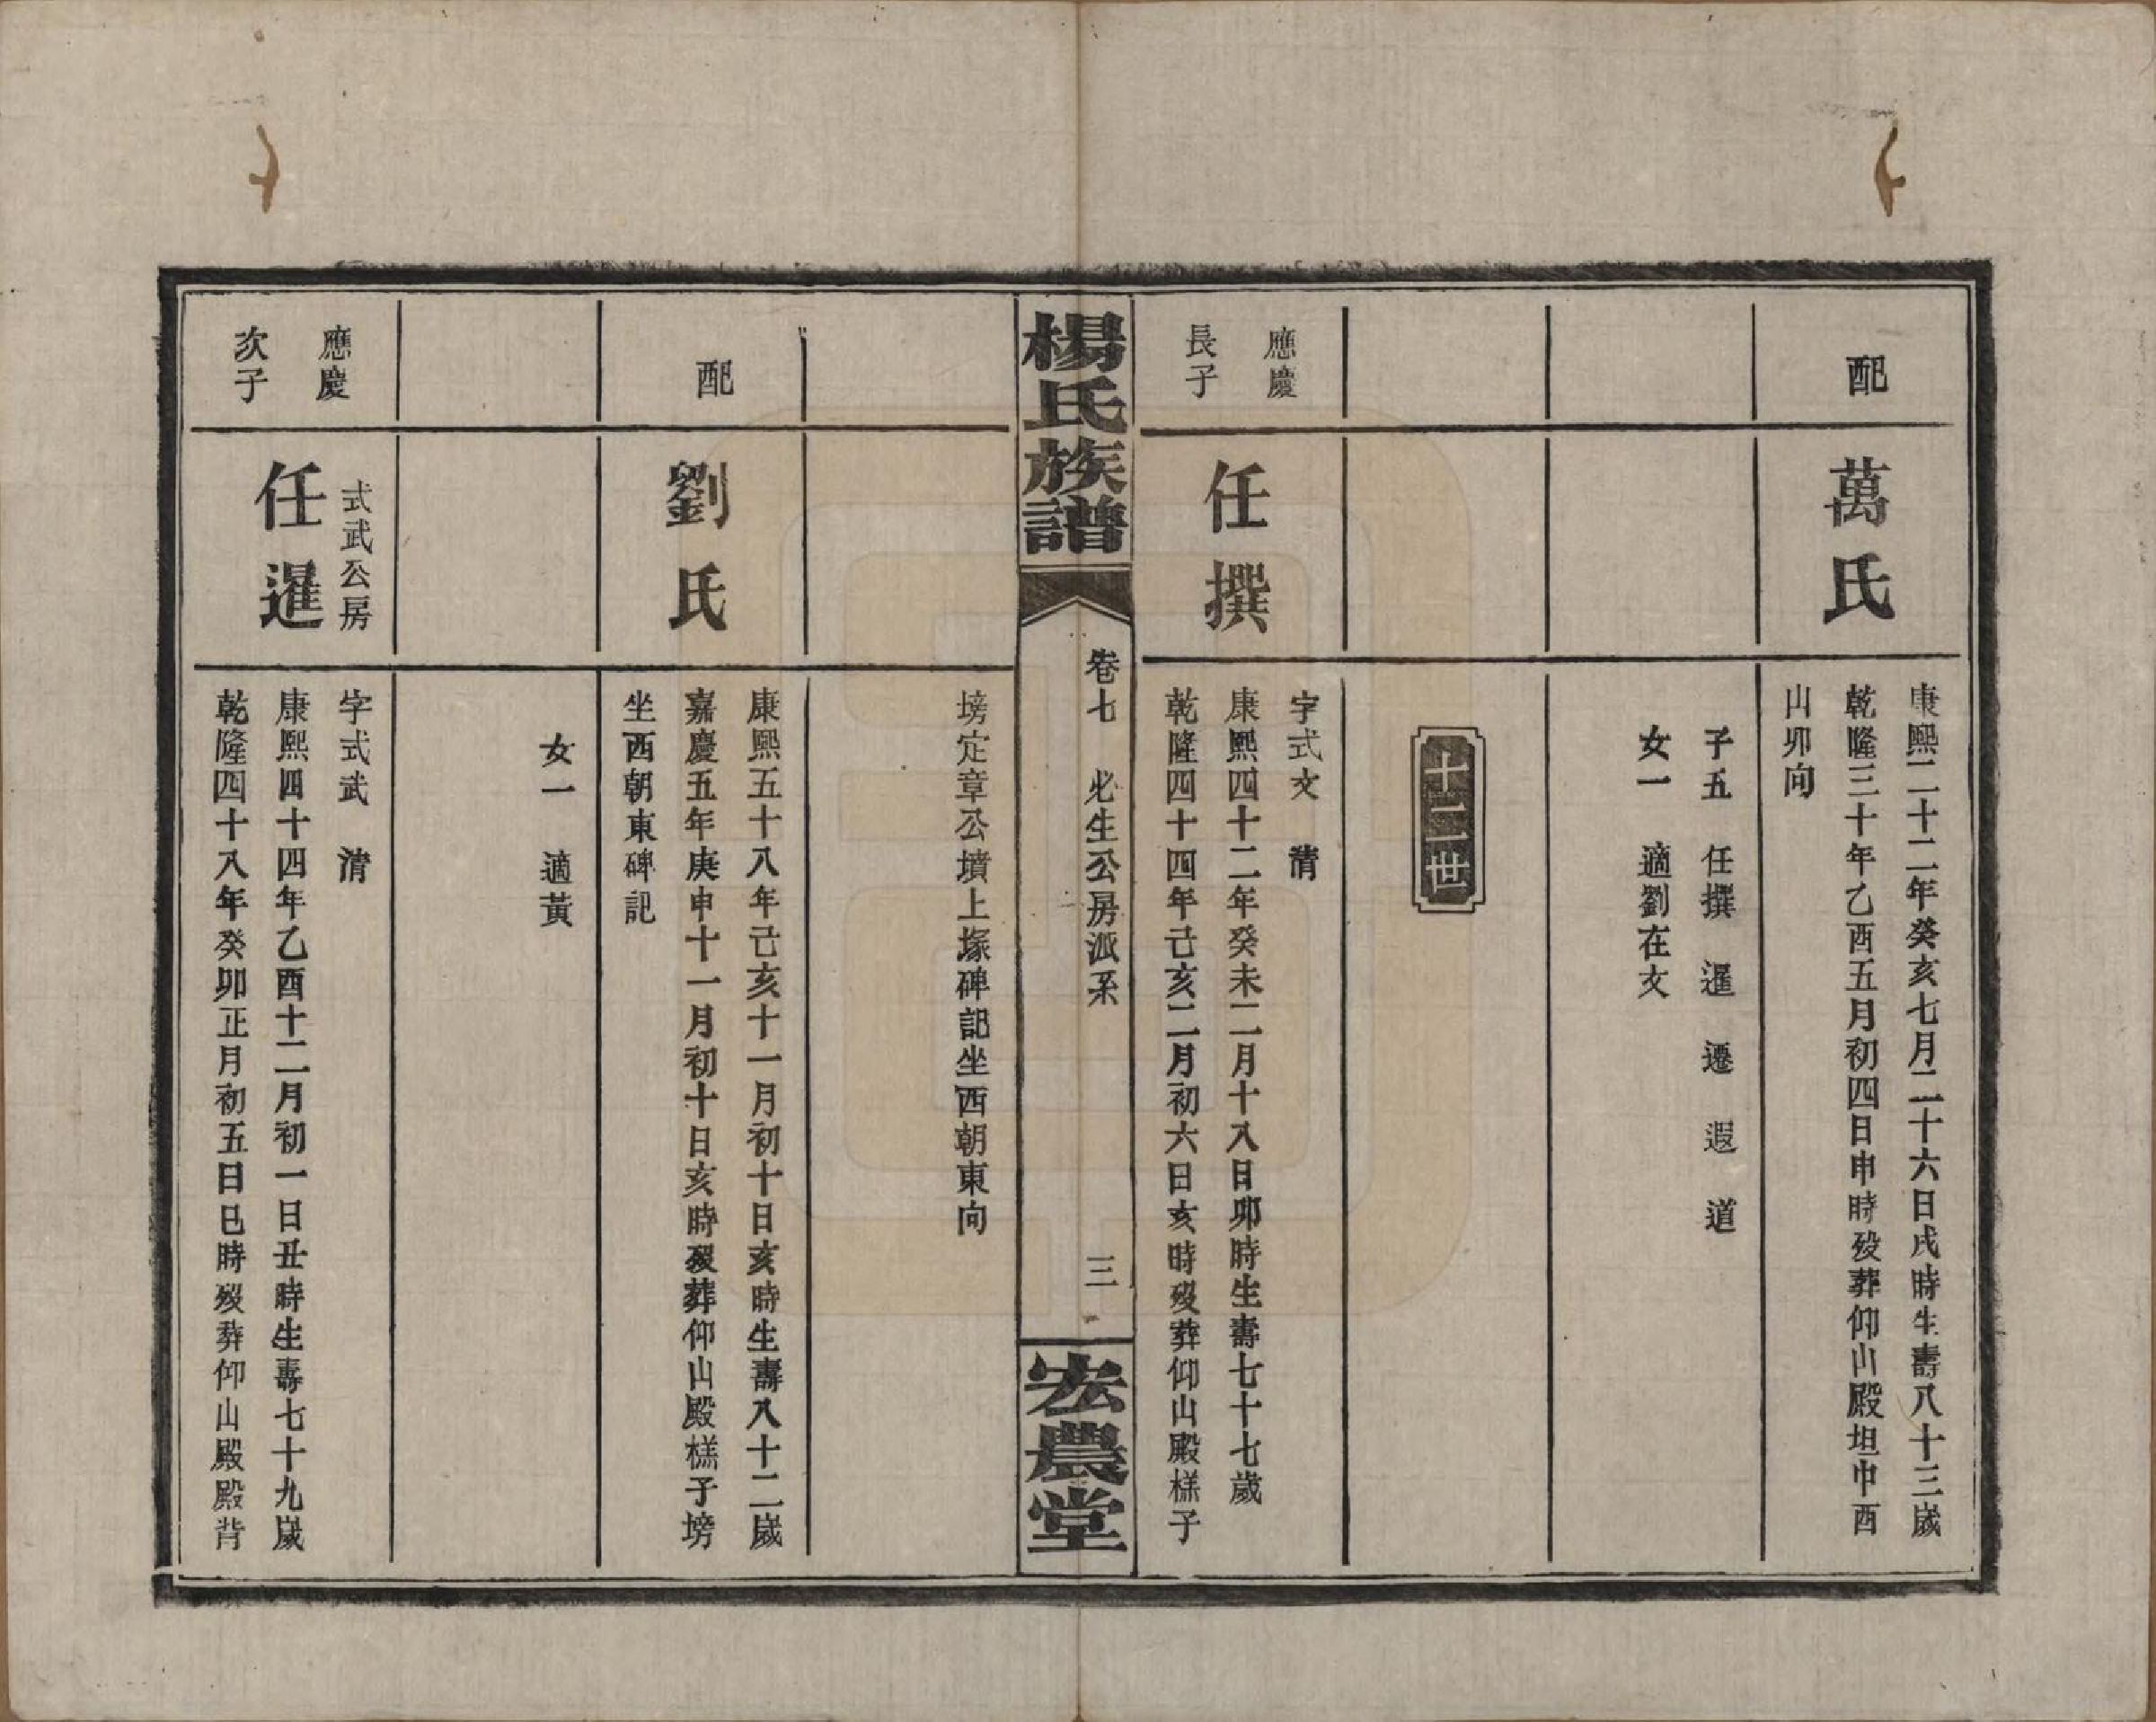 配
萬氏
康熙二十二年癸亥七月二十六日戌時生壽八十三歲
乾隆三十年乙酉五月初四日申時歿葬仰山殿坦中酉
山卯向
子五　任撰　暹　遷　遐　道
女一　適劉在文
十二世
應慶
長子
任撰
字式文　清
康熙四十二年癸未二月十八日卯時生壽七十七歲
乾隆四十四年己亥二月初六日亥時歿葬仰山殿榚子
楊氏族譜
卷七　必生公房派系
三
宏農堂
塝定章公墳上塚碑記坐西朝東向
配
劉氏
康熙五十八年己亥十一月初十日亥時生壽八十二歲
嘉慶五年庚申十一月初十日亥時歿葬仰山殿榚子塝
坐西朝東碑記
女一　適黃
應慶
次子
式武公房
任暹
字式武　清
康熙四十四年乙酉十二月初一日丑時生壽七十九歲
乾隆四十八年癸卯正月初五日巳時歿葬仰山殿殿背